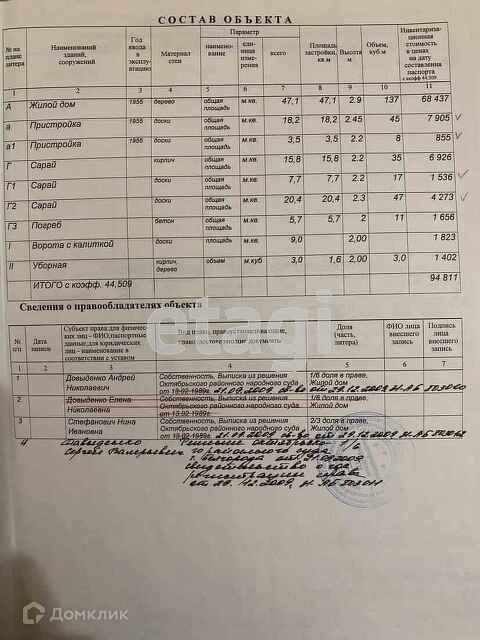 СОСТАВ ОБЪЕКТА
№ на плане литера | Наименований зданий, сооружений | Год ввода в эксплуатацию | Материал стен | Параметр | Площадь застройки, кв.м | Высота м | Объем, куб.м | Инвентаризационная стоимость в ценах на дату составления паспорта с коэфф 44,509
наименование | единица измерения | всего
1 2 3 4 5 6 7 8 9 10 11
А Жилой дом 1956 дерево общая площадь м.кв. 47,1 47,1 2.9 137 68 437
а Пристройка 1956 доски общая площадь м.кв. 18,2 18,2 2.45 45 7 905
а1 Пристройка 1956 доски общая площадь м.кв. 3,5 3,5 2.2 8 855
Г Сарай кирпич общая площадь м.кв. 15,8 15,8 2.2 35 6 926
Г1 Сарай доски общая площадь м.кв. 7,7 7,7 2.2 17 1 536
Г2 Сарай доски общая площадь м.кв. 20,4 20,4 2.3 47 4 273
Г3 Погреб бетон общая площадь м.кв. 5,7 5,7 2 11 1 656
I Ворота с калиткой доски площадь м.кв. 9,0 2,00 1 823
II Уборная кирпич, дерево объем м.куб 3,0 1,6 2.00 3,0 1 402
ИТОГО с коэфф. 44,509 94 811
Сведения о правообладателях объекта
№ п/п | Дата записи | Субъект права:для физических лиц - ФИО,паспортные данные;для юридических лиц - наименование в соответствии с уставом | Вид права, правоустанавливающие, правоудостоверяющие документы | Доля (часть, литера) | ФИО лица внесшего запись | Подпись лица внесшего запись
1 2 3 4 5 6 7
1 Довыденко Андрей Николаевич Собственность, Выписка из решения Октябрьского районного народного суда от 13-02-1989г. 1/6 доля в праве, Жилой дом
2 Довыденко Елена Николаевна Собственность, Выписка из решения Октябрьского районного народного суда от 13-02-1989г. 1/6 доля в праве, Жилой дом
3 Стефанович Нина Ивановна Собственность, Выписка из решения Октябрьского районного народного суда 2/3 доля в праве, Жилой дом
4 Давыденко
Решение
районного суда
от 29.12.2009
etagi
Домклик